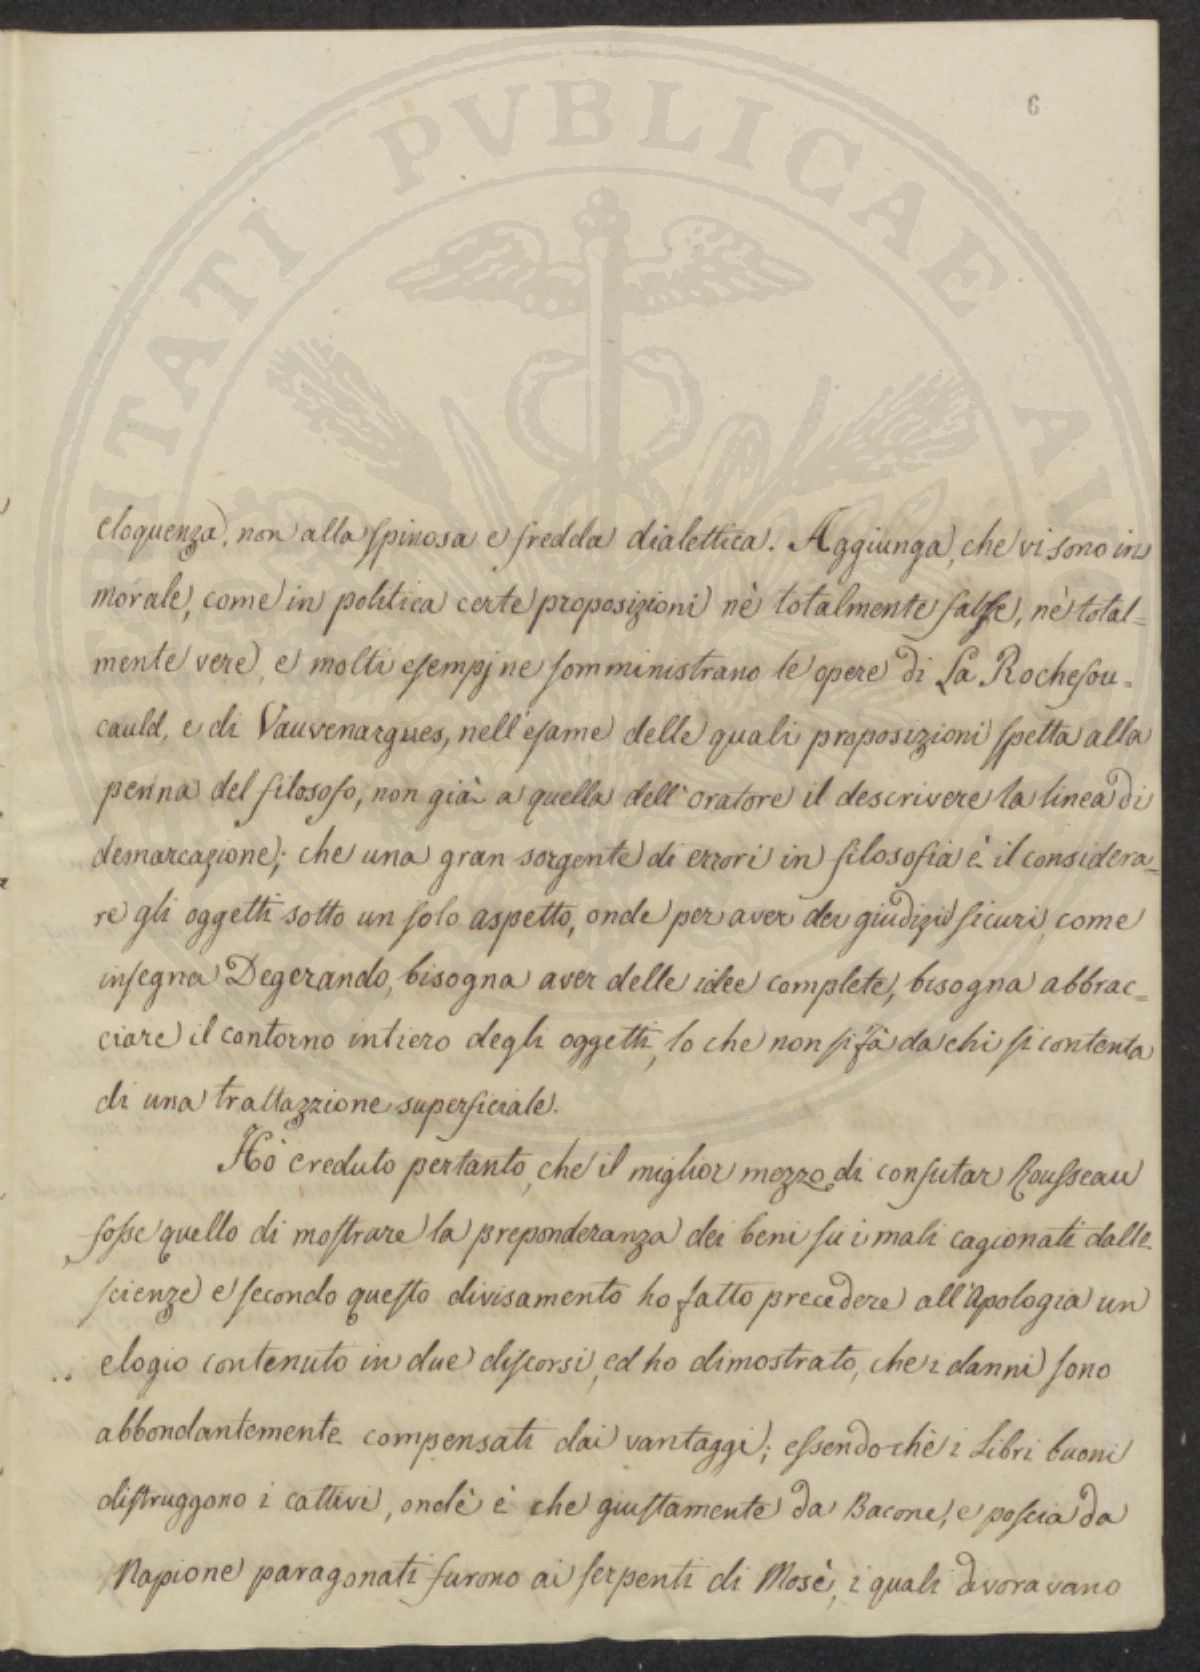 6
eloquenza, non alla spinosa e fredda dialettica. Aggiunga, che vi sono in
morale, come in politica certe proposizioni nè totalmente false, nè total=
mente vere, e molti esempj ne somministrano le opere di La Rochefou=
cauld, e di Vauvenargues, nell'esame delle quali proposizioni spetta alla
penna del filosofo, non già a quella dell'oratore il descrivere la linea di
demarcazione; che una gran sorgente di errori in filosofia è il considera=
re gli oggetti sotto un solo aspetto, onde per aver dei giudizii sicuri, come
insegna Degerando, bisogna aver delle idee complete, bisogna abbrac=
ciare il contorno intiero degli oggetti, lo che non si fà da chi si contenta
di una trattazzione superficiale.
Hò creduto pertanto, che il miglior mezzo di confutar Rousseau
fosse quello di mostrare la preponderanza dei beni su i mali cagionati dalle
scienze e secondo questo divisamento ho fatto precedere all'Apologia un
elogio contenuto in due discorsi, ed ho dimostrato, che i danni sono
abbondantemente compensati dai vantaggi; essendo chè i Libri buoni
distruggono i cattivi, ondè è che giustamente da Bacone, e poscia da
Napione paragonati furono ai serpenti di Mosè, i quali divoravano